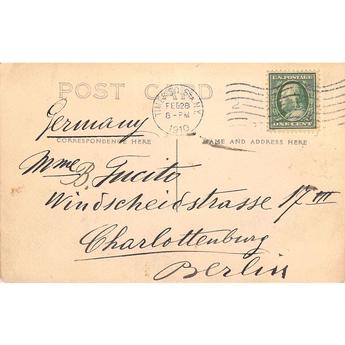 POST CARD
FEB 28
8-PM
1910
U.S. POSTAGE
ONE CENT
Germany
CORRESPONDENCE HERE
NAME AND ADDRESS HERE
Mme B. Fucito
Windscheidstrasse 17 III
Charlottenburg
Berlin